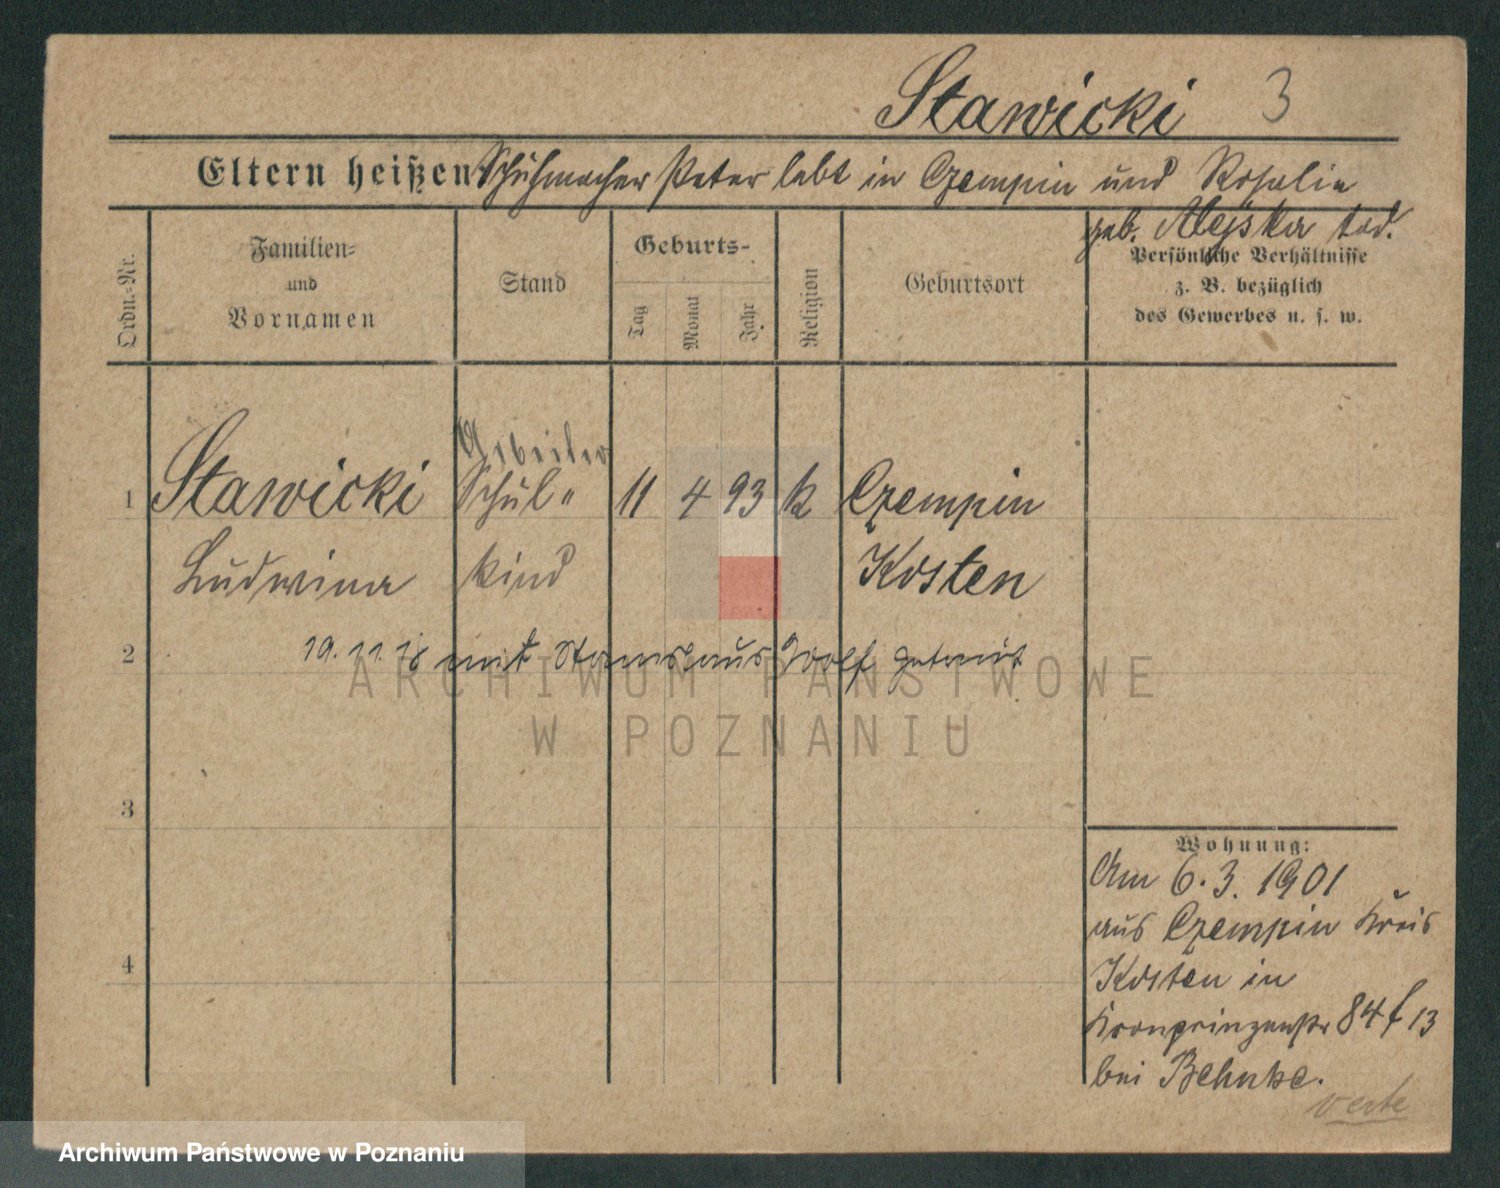 Stawicki 3
Eltern heißen Schuhmacher Peter lebt in Czempin und Rosalie
geb. Alejska tod.
Ordn.-Nr.
Familien-
und
Vornamen
Stand
Geburts-
Tag
Monat
Jahr
Religion
Geburtsort
Persönliche Verhältnisse
z. B. bezüglich
des Gewerbes u. s. w.
Arbeiter
1 Stawicki Schul- 11 4 93 k Czempin
Ludwina kind Kosten
2 19.11.18 mit Stanislaus Wolf getraut
ARCHIWUM PAŃSTWOWE
W POZNANIU
3
Wohnung:
Am 6.3.1901
aus Czempin Kreis
4
Kosten in
Kronprinzenstr 84 f 13
bei Behnke.
verte
Archiwum Państwowe w Poznaniu